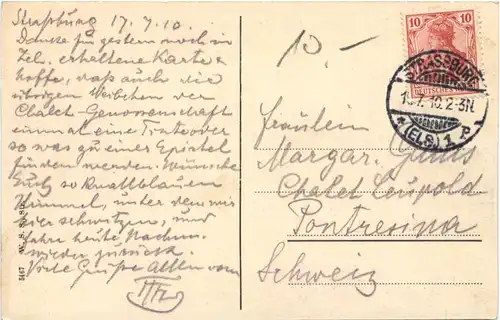 Straßburg 17.7.10.
Danke für gestern noch in
Zel. erhaltene Karte u
hoffe, daß auch die
übrigen Weibchen der
Chalet-Genossenschaft
einmal eine Tinte oder
so was zu einer Epistel
finden werden. Wünsche
Euch so knallblauen
Himmel, unter dem wir
hier schwitzen, und
fahre heute Nachm.
wieder zurück.
Viele Grüße Allen vom
10.-
10 10
DEUTSCHES REICH
STRASSBURG
7.10.2-3N
* (ELS.) 1 P
Fräulein
Margar.
Chalet Leupold
Pontresina
Schweiz
5467